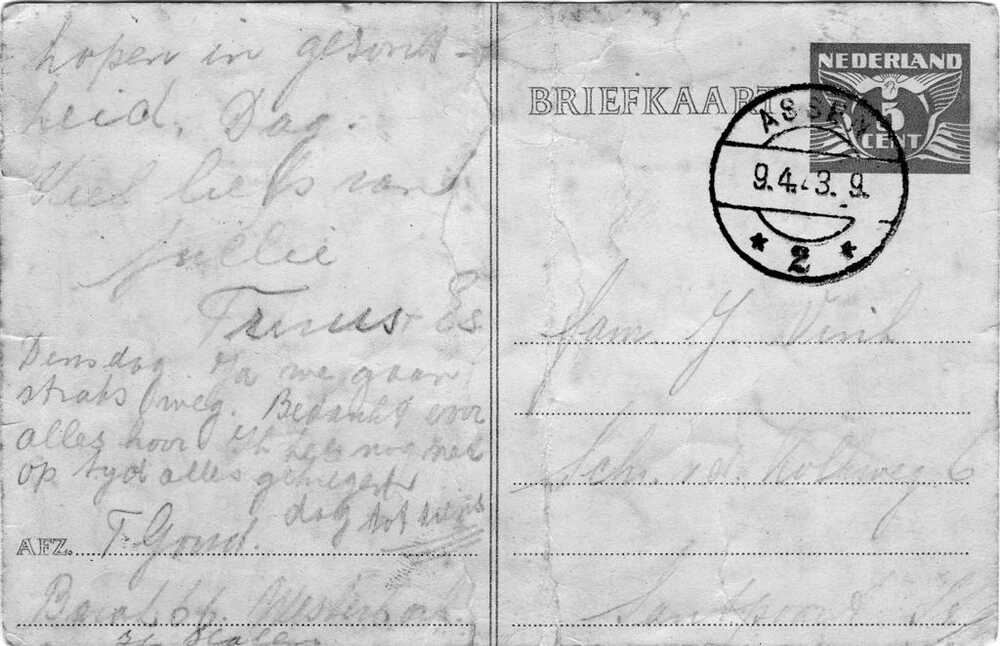 hopen in gezond-
heid. Dag.
Veel liefs van
jullie
Truus Es
Densdag. Ja we gaan
straks weg. Bedankt voor
alles hoor. Ik heb nog net
op tyd alles gekregen
dag tot ziens
AFZ. T. Goud.
Barak Westerbork.
BRIEFKAART
NEDERLAND
5
CENT
ASSEN
9.4.43.9.
* 2 *
Fam. J. Vink
Sch. v.d. Kolkweg 6
Santpoort